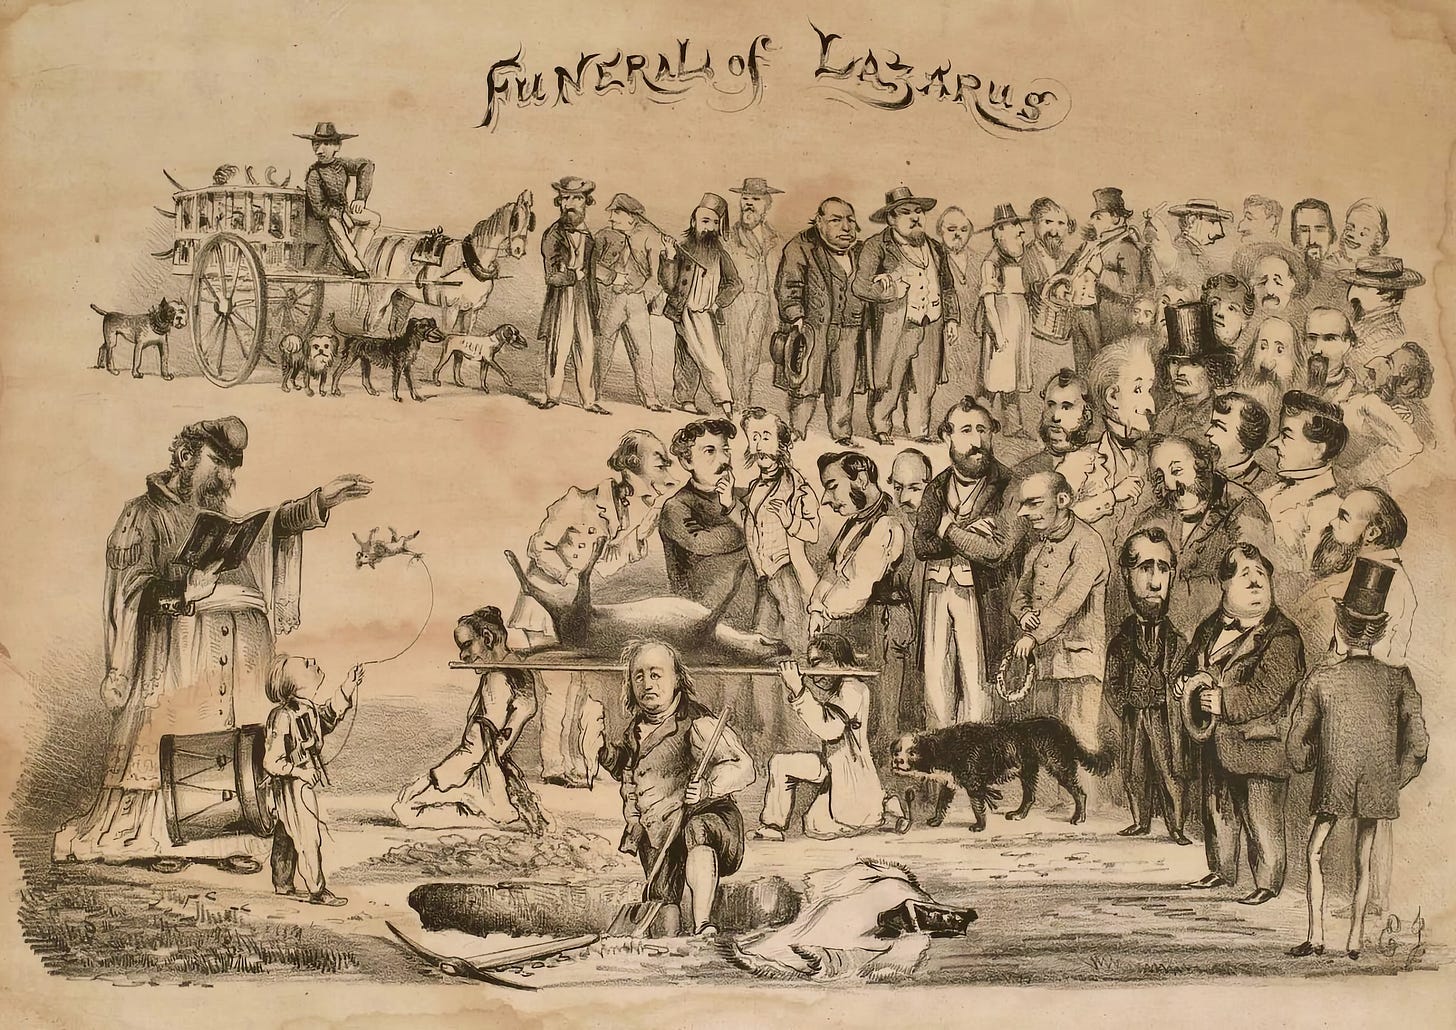 Funeral of Lazarus